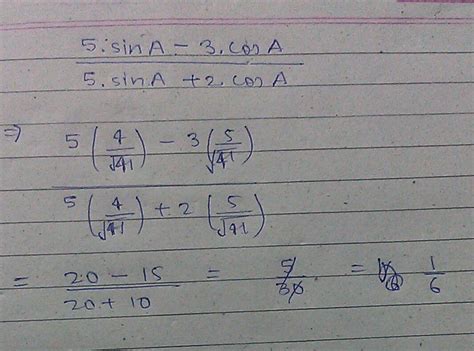 5.sinA - 3.cosA
5.sinA + 2.cosA
⇒ 5 (4/√41) - 3 (5/√41)
5 (4/√41) + 2 (5/√41)
= 20 - 15 / 20 + 10 = 5/30 = 1/6